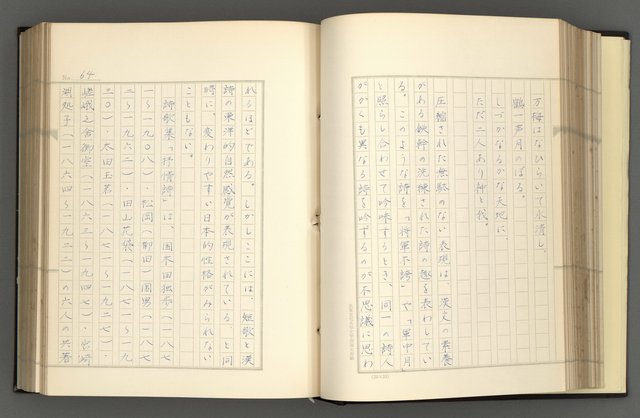 万梅はなひらいて水清し。
鶴一声月のぼる。
しづかなるかな天地に、
ただ二人あり神と我。
圧縮された無駄のない表現は、漢文の素養
がある鉄幹の洗練された詩の趣を表わしてい
る。このような詩を、「将軍不誇」や「軍中月」
と照らし合わせて吟味するとき、同一の詩人
がかくも異なる詩を吟ずるのが不思議に思わ
(20×20)
No. 64
れるほどである。しかしここには、短歌と漢
詩の東洋的自然感覚が表現されている と同
時に、変わりやすい日本的性格がみられない
こともない。
詩歌集「抒情詩」は、国木田独歩(一八七
一〜一九〇八)・松岡(柳田)国男(一八七
二〜一九六二)・田山花袋(一八七一〜一九
三〇)・太田玉茗(一八七一〜一九二七)・
嵯峨之舎御室(一八六三〜一九四七)・宮崎
湖処子(一八六四〜一九二二)の六人の共著